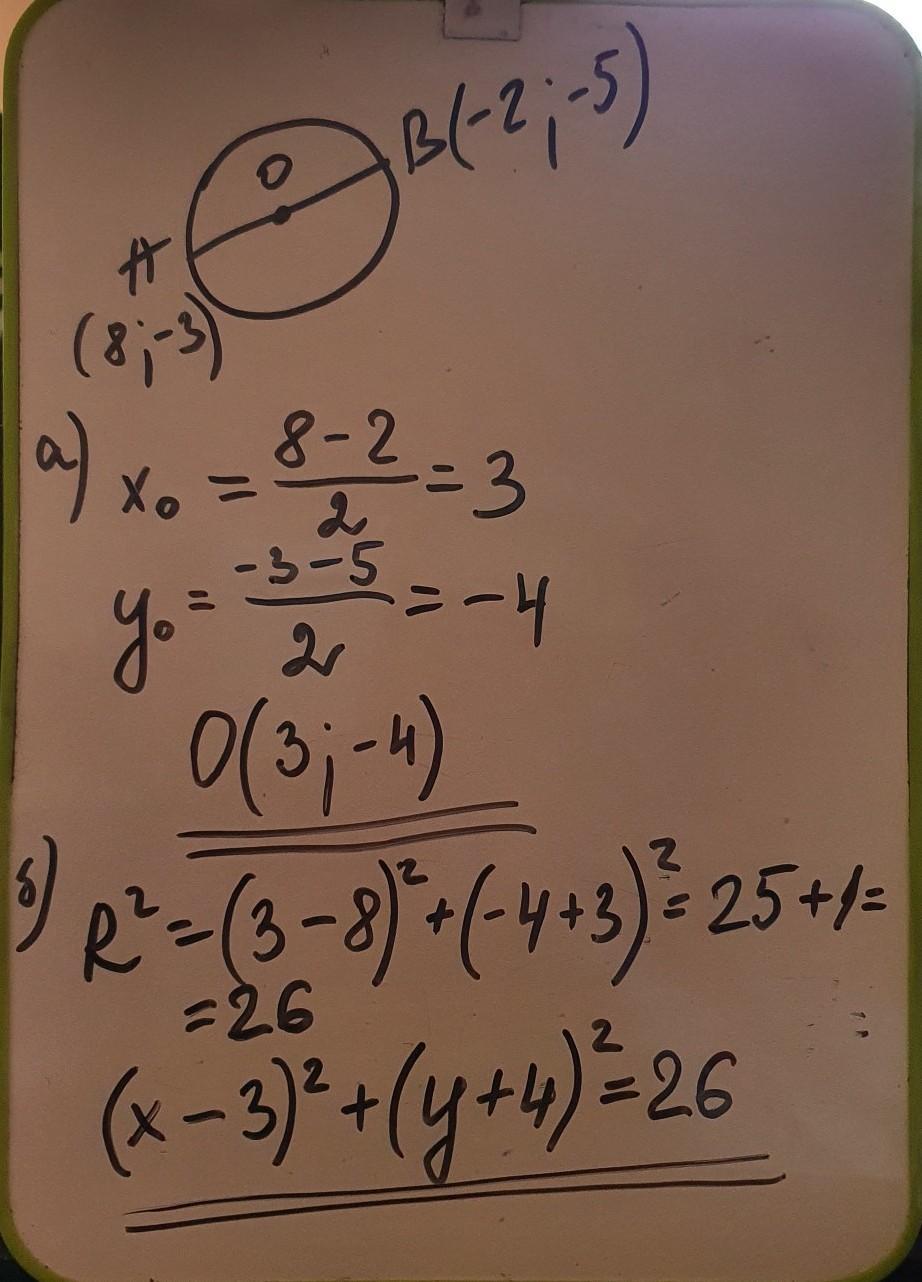 B(-2;-5)
O
A
(8;-3)
а) x₀ = (8-2)/2 = 3
y₀ = (-3-5)/2 = -4
O(3;-4)
б) R² = (3-8)² + (-4+3)² = 25+1=
=26
(x-3)² + (y+4)² = 26